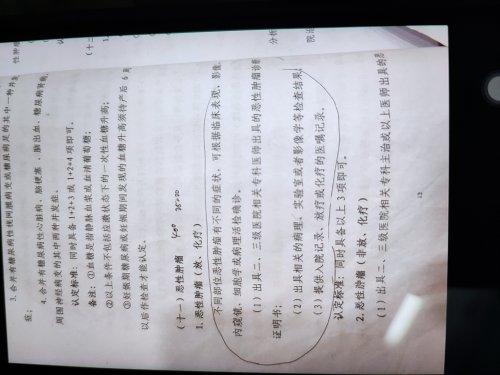 性肿瘤
认定
(十二
3.合并有糖尿病性视网膜病变或糖尿病足的其中一种并发
症;
4.合并有糖尿病性心脏病、脑梗塞、脑出血、糖尿病肾病
周围神经病变的其中两种并发症。
认定标准:同时具备1+2+3或1+2+4项即可。
备注:①血糖是指静脉血浆或血清葡萄糖;
②以上条件不包括应激状态下的一次性血糖升高;
③妊娠期糖尿病或妊娠期间发现的血糖升高须待产后6周
以后作检查才能认定。
(十一)恶性肿瘤
1.恶性肿瘤(放、化疗)
不同部位恶性肿瘤有不同的症状,可根据临床表现、影像
内窥镜、细胞学或病理活检确诊。
(1)出具二、三级医院相关专科医师出具的恶性肿瘤诊断
证明书;
(2)出具相关的病理、实验室或者影像学等检查结果
(3)提供入院记录、放疗或化疗的医嘱记录。
认定标准:同时具备以上3项即可。
2.恶性肿瘤(非放、化疗)
(1)出具二、三级医院相关专科主治或以上医师出具的恶
分析
院治